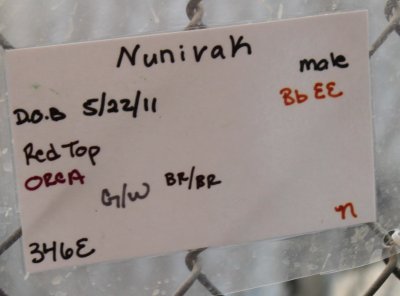 Nunivak
male
D.O.B 5/22/11
Bb EE
Red Top
ORCA
G/W BR/BR
n
346E